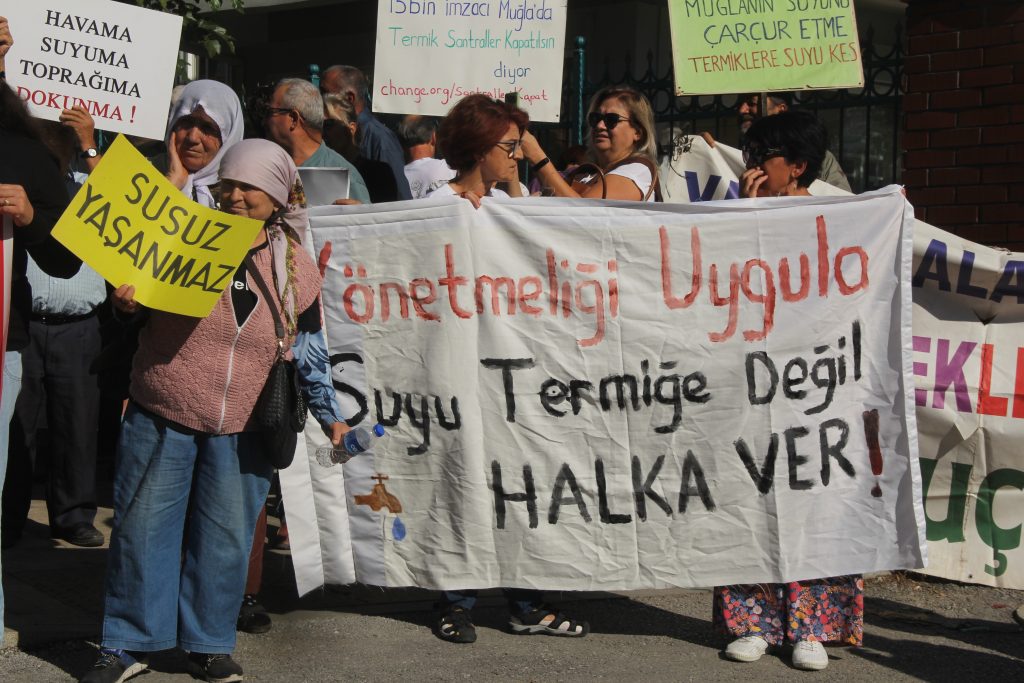 HAVAMA
SUYUMA
TOPRAĞIMA
DOKUNMA !
15bin imzacı Muğla'da
Termik Santraller Kapatılsın
diyor
change.org/santralleriKapat
MUĞLANIN SUYUNU
ÇARÇUR ETME
TERMİKLERE SUYU KES
SUSUZ
YAŞANMAZ
Yönetmeliği Uygula
Suyu Termiğe Değil
HALKA VER!